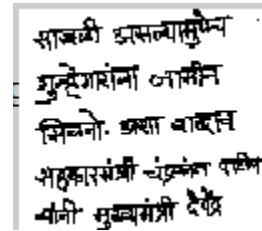 साखळी असल्यामुळेच
गुन्हेगारांना जामीन
मिळतो. अशा वाढत्या
सहकारमंत्री चंद्रकांत पाटील
यांनी मुख्यमंत्री देवेंद्र